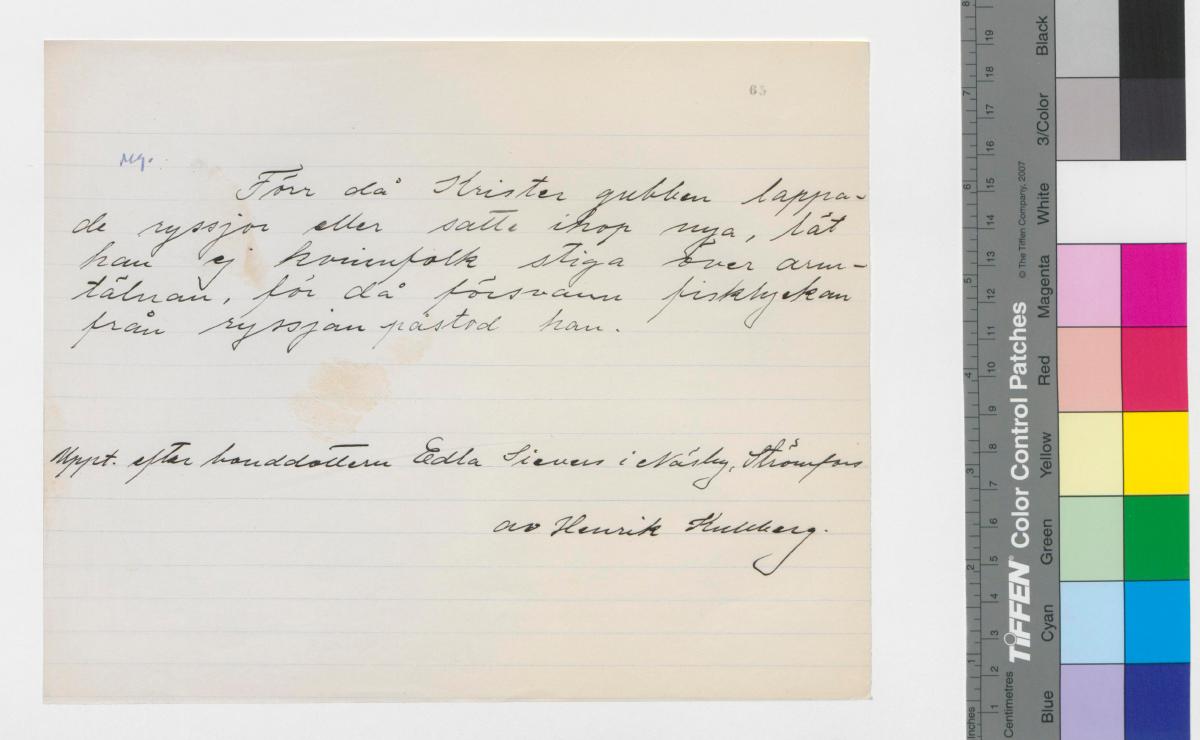 65
Förr då Krister gubben lappa-
de ryssjor eller satte ihop nya, lät
han ej kvinnfolk stiga över arm-
tälnan, för då försvann fisklyckan
från ryssjan påstod han.
Uppt. efter bonddottern Edla Sievers i Näsby, Strömfors
av Henrik Kullberg.
Inches
Centimetres
8 7 6 5 4 3 2 1
19 18 17 16 15 14 13 12 11 10 9 8 7 6 5 4 3 2 1
TIFFEN® Color Control Patches
© The Tiffen Company, 2007
Black
3/Color
White
Magenta
Red
Yellow
Green
Cyan
Blue